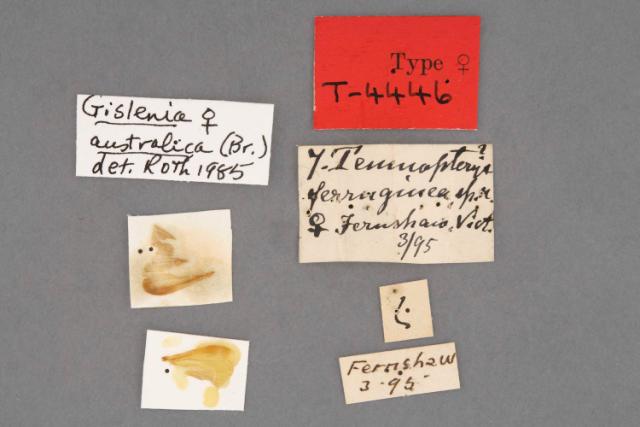 Type ♀
T-4446
Gislenia ♀
australica (Br.)
det. Roth 1985
7. Temnopteryx?
ferruginea, sp. n.
♀ Fernshaw, Vict.
3/95
Fernshaw
3-95